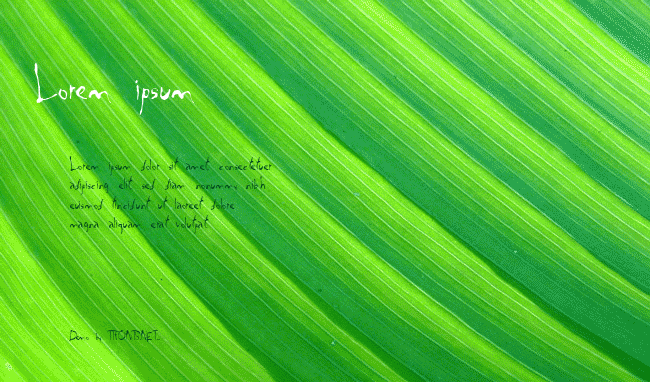 Lorem ipsum
Lorem ipsum dolor sit amet consectetuer
adipiscing elit sed diam nonummy nibh
euismod tincidunt ut laoreet dolore
magna aliquam erat volutpat
Demo by TRIONT.NET